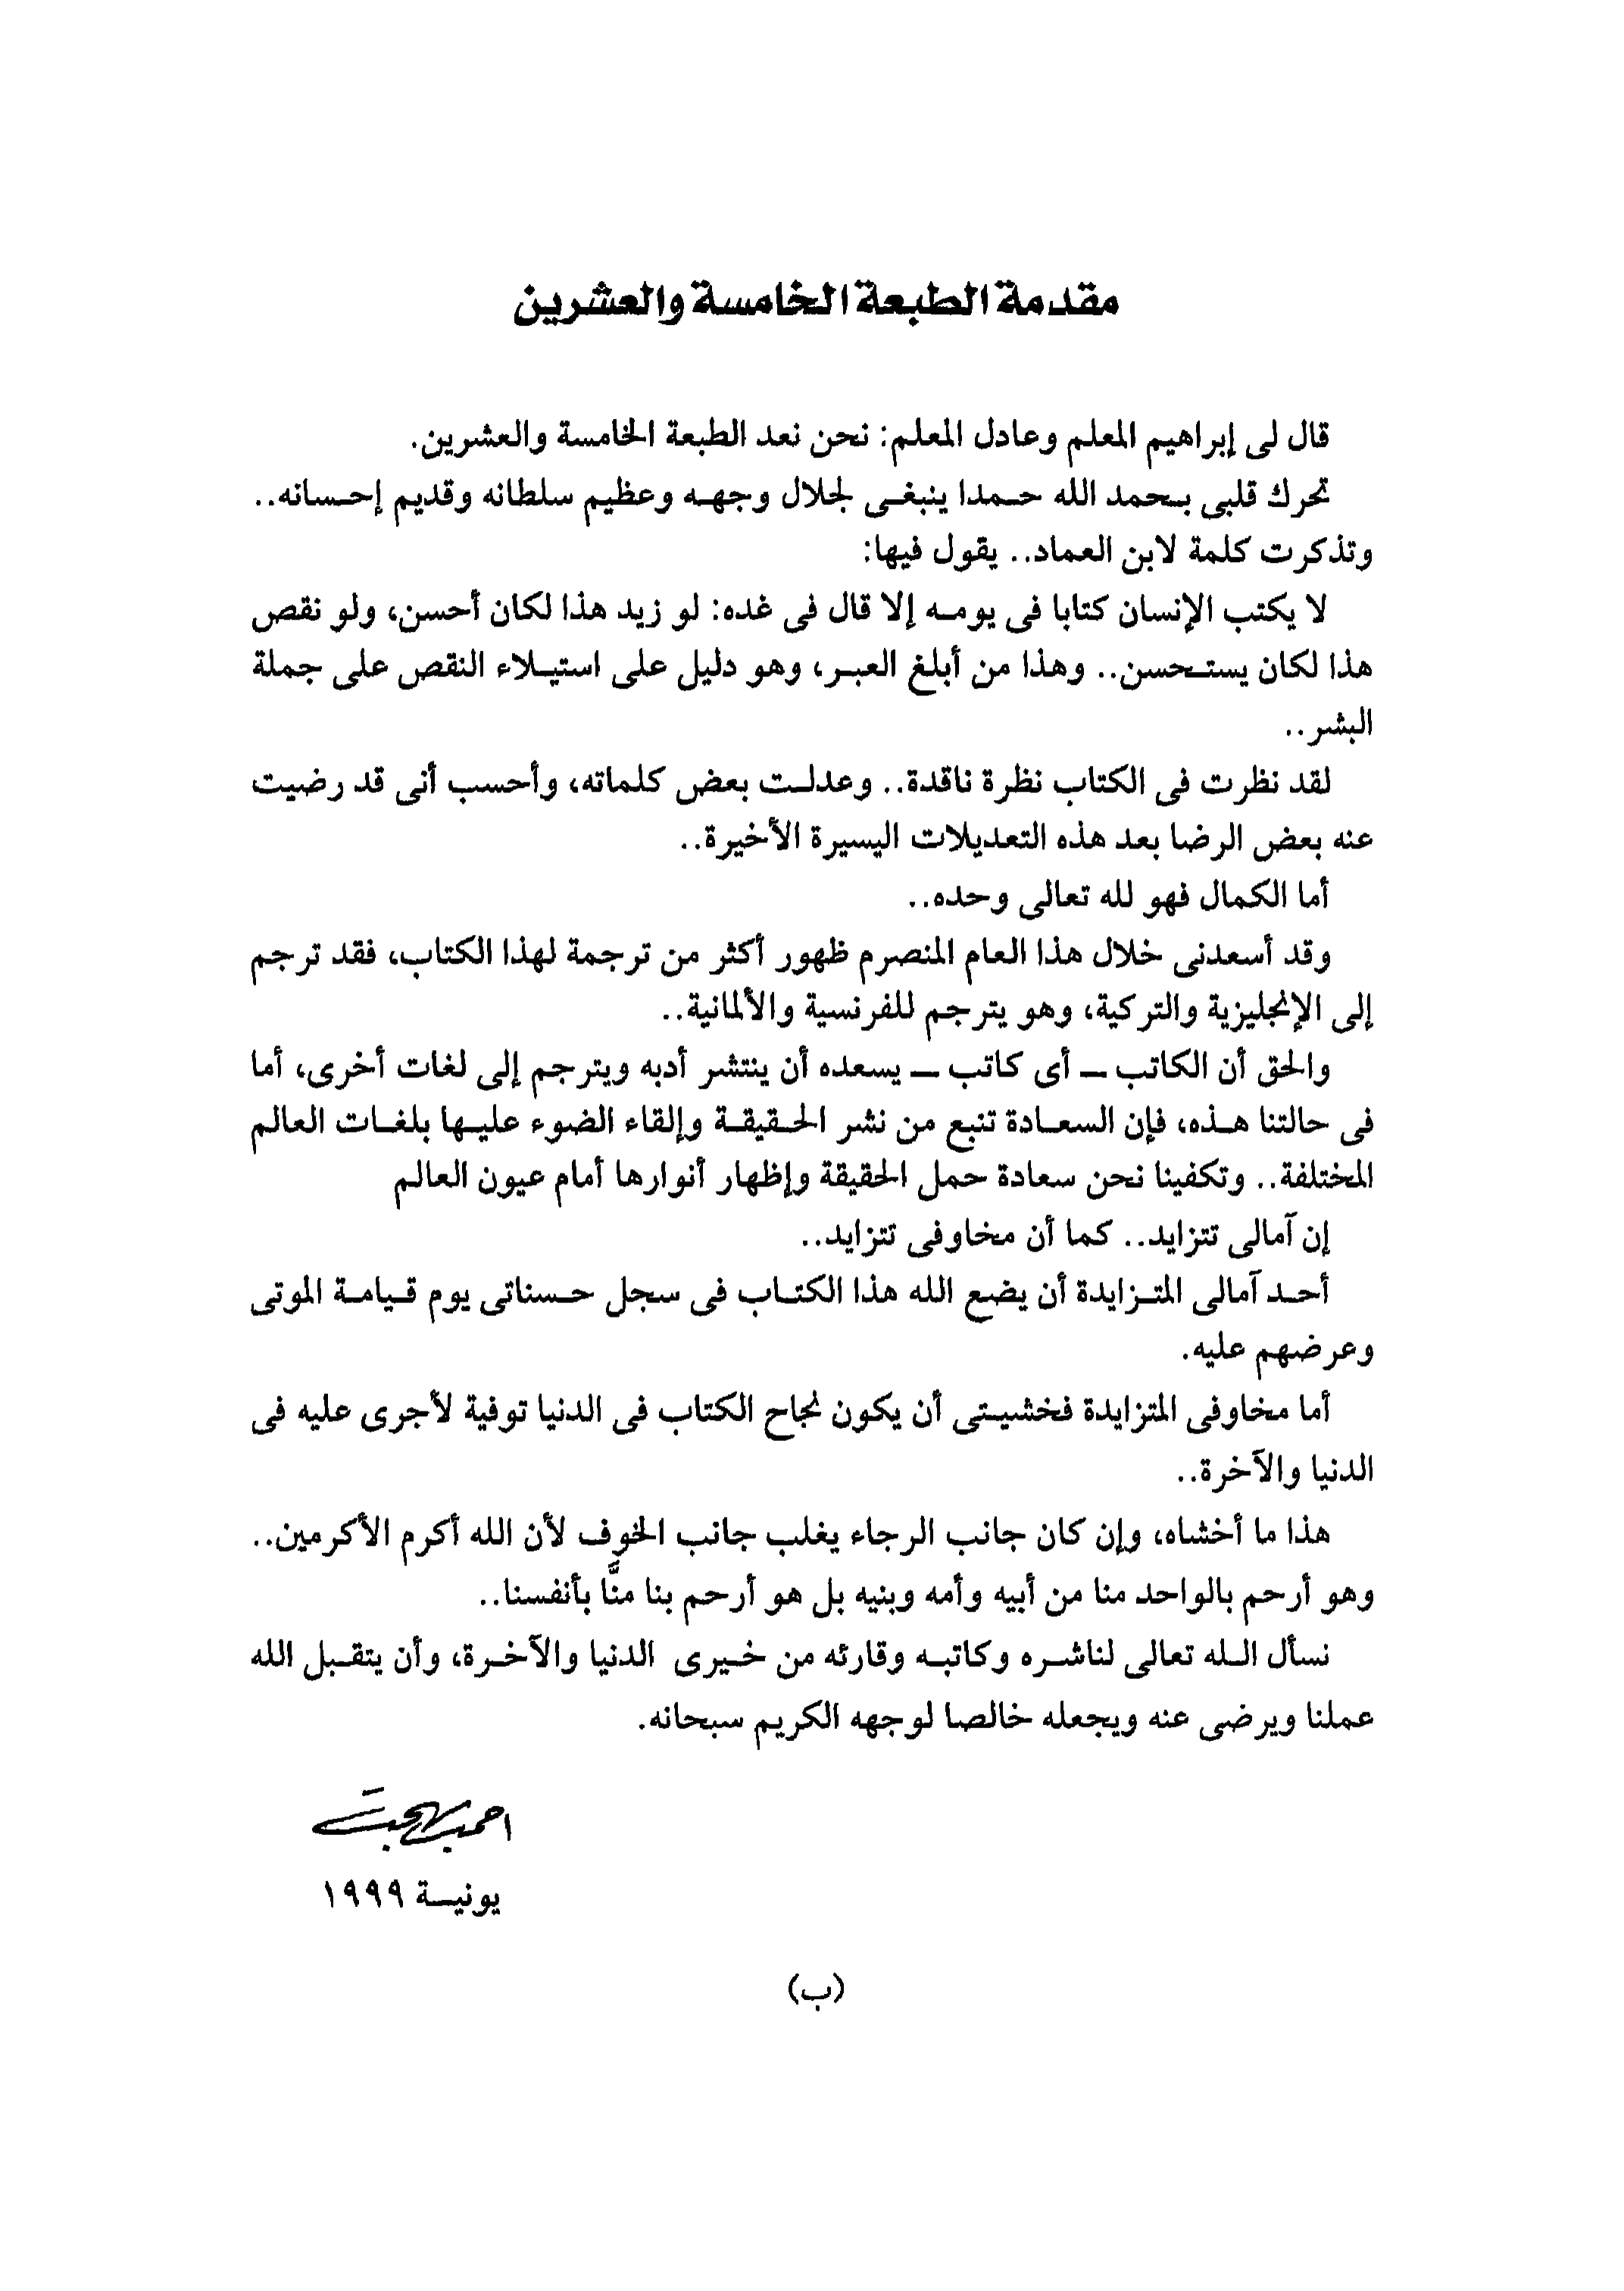 مقدمة الطبعة الخامسة والعشرين
قال لى إبراهيم المعلم وعادل المعلم: نحن نعد الطبعة الخامسة والعشرين.
تحرك قلبى بحمد الله حمدا ينبغى لجلال وجهه وعظيم سلطانه وقديم إحسانه..
وتذكرت كلمة لابن العماد.. يقول فيها:
لا يكتب الإنسان كتابا فى يومه إلا قال فى غده: لو زيد هذا لكان أحسن، ولو نقص
هذا لكان يستحسن.. وهذا من أبلغ العبر، وهو دليل على استيلاء النقص على جملة
البشر..
لقد نظرت فى الكتاب نظرة ناقدة.. وعدلت بعض كلماته، وأحسب أنى قد رضيت
عنه بعض الرضا بعد هذه التعديلات اليسيرة الأخيرة..
أما الكمال فهو لله تعالى وحده..
وقد أسعدنى خلال هذا العام المنصرم ظهور أكثر من ترجمة لهذا الكتاب، فقد ترجم
إلى الإنجليزية والتركية، وهو يترجم للفرنسية والألمانية..
والحق أن الكاتب ــ أى كاتب ــ يسعده أن ينتشر أدبه ويترجم إلى لغات أخرى، أما
فى حالتنا هذه، فإن السعادة تنبع من نشر الحقيقة وإلقاء الضوء عليها بلغات العالم
المختلفة.. وتكفينا نحن سعادة حمل الحقيقة وإظهار أنوارها أمام عيون العالم
إن آمالى تتزايد.. كما أن مخاوفى تتزايد..
أحد آمالى المتزايدة أن يضع الله هذا الكتاب فى سجل حسناتى يوم قيامة الموتى
وعرضهم عليه.
أما مخاوفى المتزايدة فخشيتى أن يكون نجاح الكتاب فى الدنيا توفية لأجرى عليه فى
الدنيا والآخرة..
هذا ما أخشاه، وإن كان جانب الرجاء يغلب جانب الخوف لأن الله أكرم الأكرمين..
وهو أرحم بالواحد منا من أبيه وأمه وبنيه بل هو أرحم بنا منَّا بأنفسنا..
نسأل الله تعالى لناشره وكاتبه وقارئه من خيرى الدنيا والآخرة، وأن يتقبل الله
عملنا ويرضى عنه ويجعله خالصا لوجهه الكريم سبحانه.
احمد بهجت
يونية ١٩٩٩
(ب)